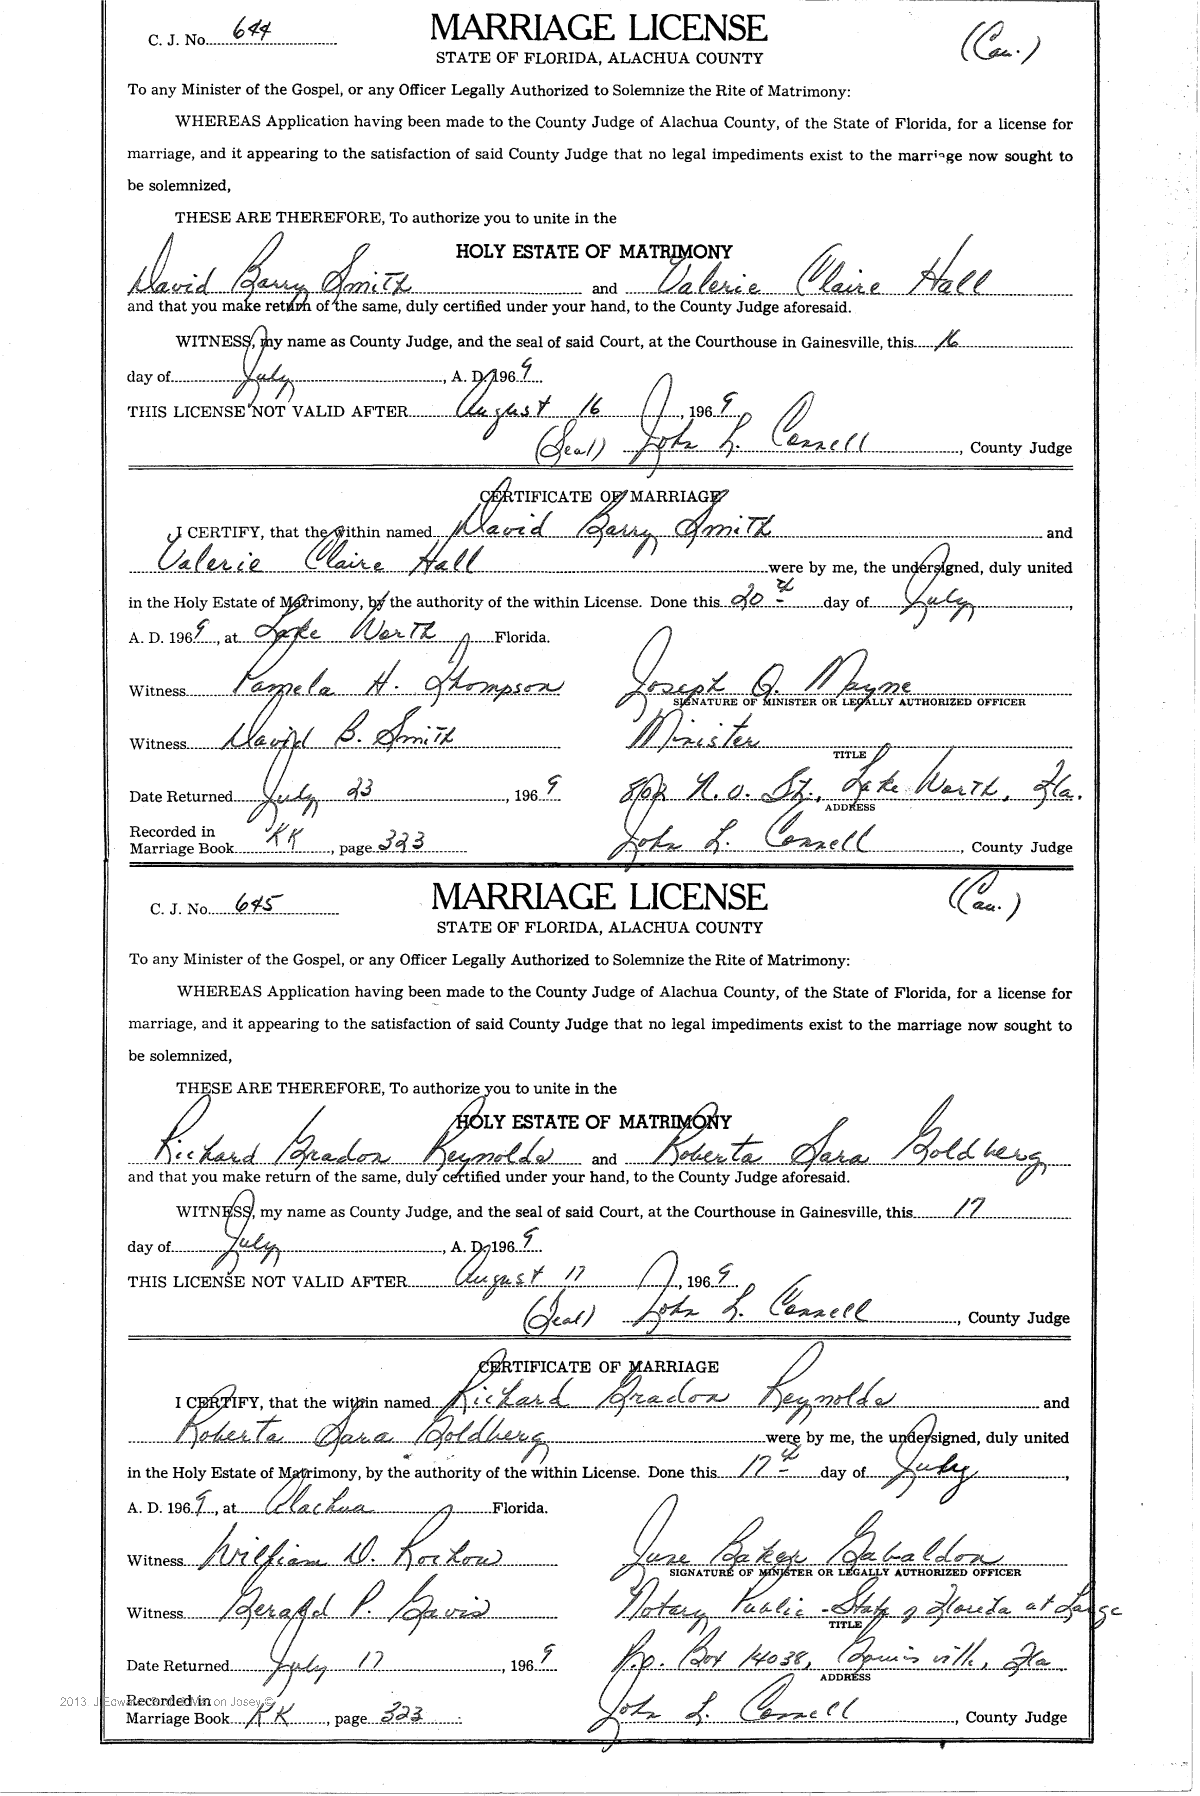 C. J. No. 644
MARRIAGE LICENSE
(Cau.)
STATE OF FLORIDA, ALACHUA COUNTY
To any Minister of the Gospel, or any Officer Legally Authorized to Solemnize the Rite of Matrimony:
WHEREAS Application having been made to the County Judge of Alachua County, of the State of Florida, for a license for
marriage, and it appearing to the satisfaction of said County Judge that no legal impediments exist to the marriage now sought to
be solemnized,
THESE ARE THEREFORE, To authorize you to unite in the
HOLY ESTATE OF MATRIMONY
David Barry Smith and Valerie Claire Hall
and that you make return of the same, duly certified under your hand, to the County Judge aforesaid.
WITNESS, my name as County Judge, and the seal of said Court, at the Courthouse in Gainesville, this 16
day of July, A. D. 1969
THIS LICENSE NOT VALID AFTER August 16, 1969
(Seal) John L. Connell, County Judge
CERTIFICATE OF MARRIAGE
I CERTIFY, that the within named David Barry Smith and
Valerie Claire Hall were by me, the undersigned, duly united
in the Holy Estate of Matrimony, by the authority of the within License. Done this 20th day of July,
A. D. 1969, at Lake Worth Florida.
Witness Pamela H. Thompson Joseph Q. Mayne
SIGNATURE OF MINISTER OR LEGALLY AUTHORIZED OFFICER
Witness David B. Smith Minister
TITLE
Date Returned July 23, 1969 802 N. O. St., Lake Worth, Fla.
ADDRESS
Recorded in
Marriage Book KK, page 323 John L. Connell, County Judge
C. J. No. 645
MARRIAGE LICENSE
(Cau.)
STATE OF FLORIDA, ALACHUA COUNTY
To any Minister of the Gospel, or any Officer Legally Authorized to Solemnize the Rite of Matrimony:
WHEREAS Application having been made to the County Judge of Alachua County, of the State of Florida, for a license for
marriage, and it appearing to the satisfaction of said County Judge that no legal impediments exist to the marriage now sought to
be solemnized,
THESE ARE THEREFORE, To authorize you to unite in the
HOLY ESTATE OF MATRIMONY
Richard Gradon Reynolds and Roberta Sara Goldberg
and that you make return of the same, duly certified under your hand, to the County Judge aforesaid.
WITNESS, my name as County Judge, and the seal of said Court, at the Courthouse in Gainesville, this 17
day of July, A. D. 1969
THIS LICENSE NOT VALID AFTER August 17, 1969
(Seal) John L. Connell, County Judge
CERTIFICATE OF MARRIAGE
I CERTIFY, that the within named Richard Gradon Reynolds and
Roberta Sara Goldberg were by me, the undersigned, duly united
in the Holy Estate of Matrimony, by the authority of the within License. Done this 17th day of July,
A. D. 1969, at Alachua Florida.
Witness William D. Rochow June Baker Gabaldon
SIGNATURE OF MINISTER OR LEGALLY AUTHORIZED OFFICER
Witness Gerald P. Gavis Notary Public - State of Florida at Large
TITLE
Date Returned July 17, 1969 P.O. Box 14038, Gainesville, Fla.
ADDRESS
Recorded in
Marriage Book KK, page 323 John L. Connell, County Judge